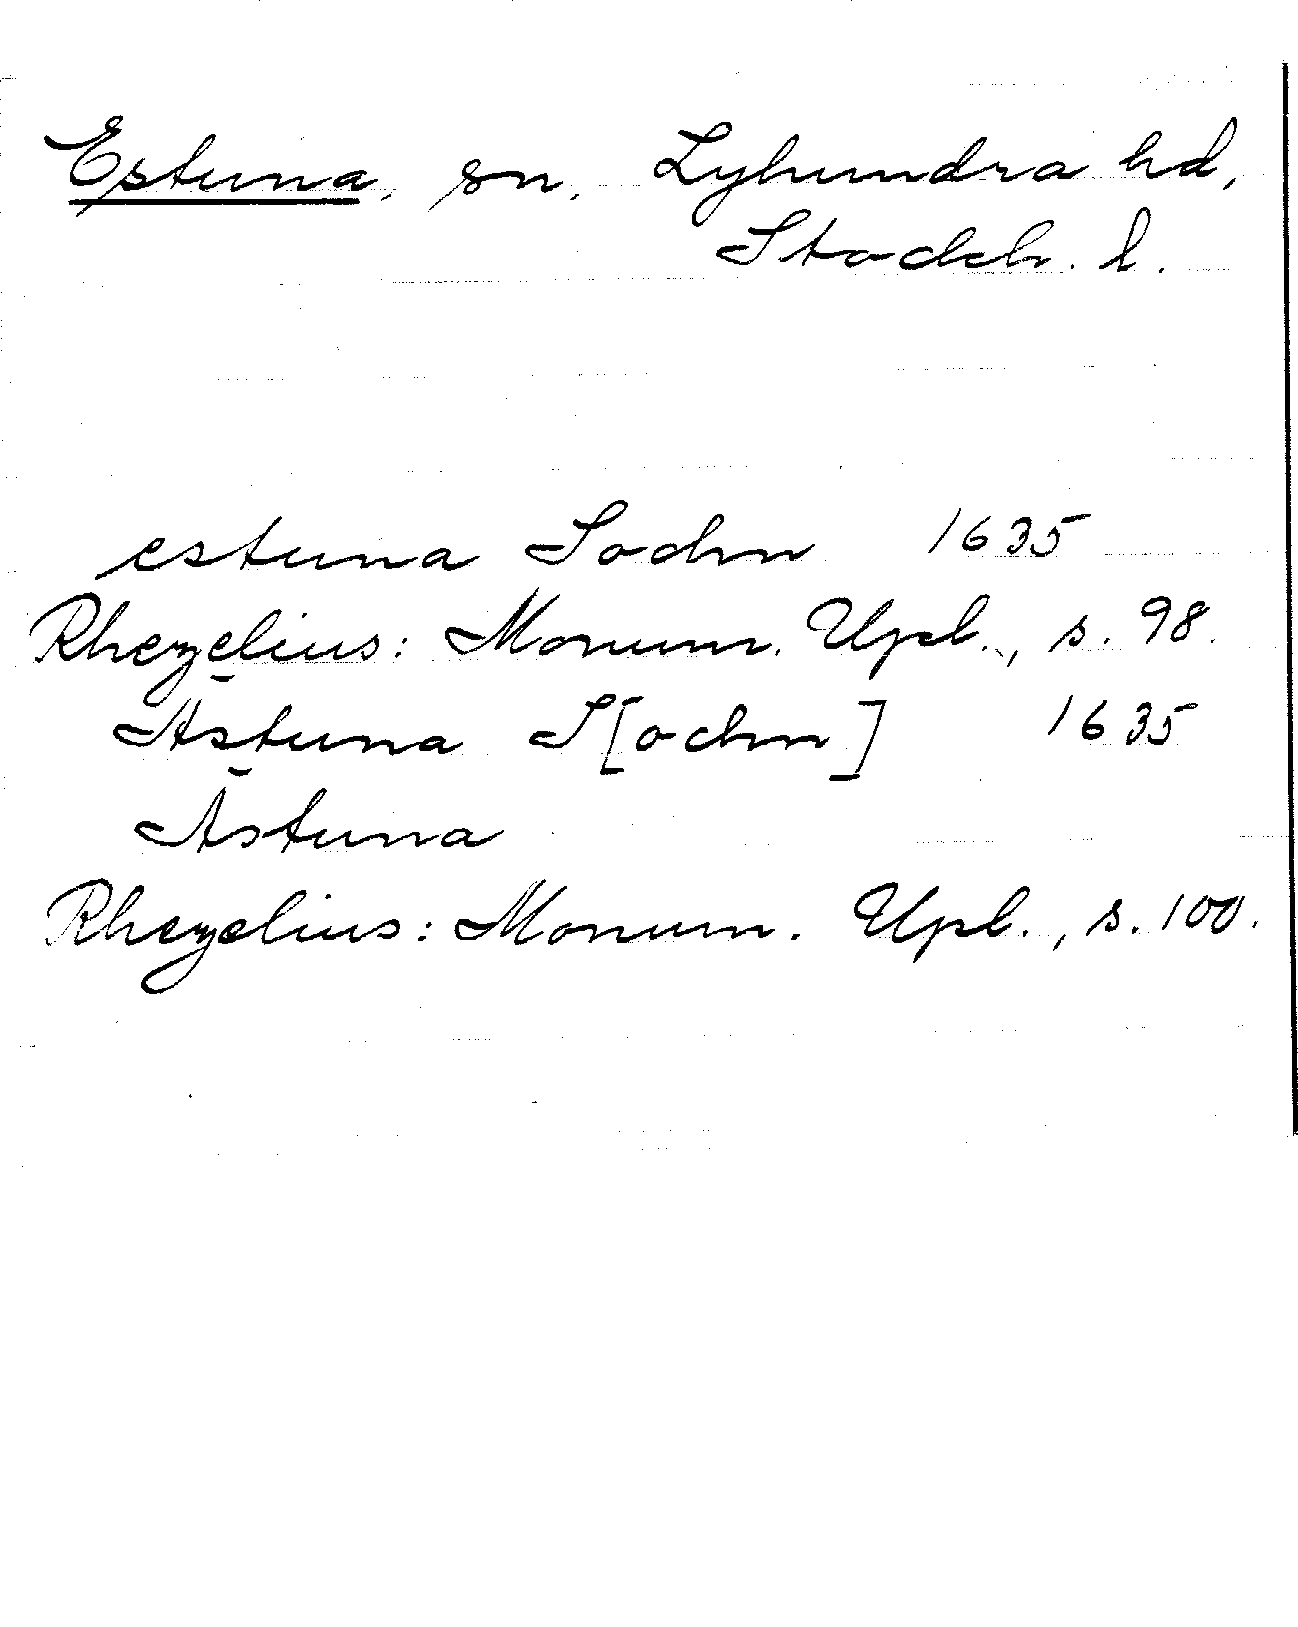 Estuna, sn, Lyhundra hd,
Stockh. l.
estuna Sochn 1635
Rhezelius: Monum. Upl., s. 98.
Ästuna S[ochn] 1635
Ästuna
Rhezelius: Monum. Upl., s. 100.